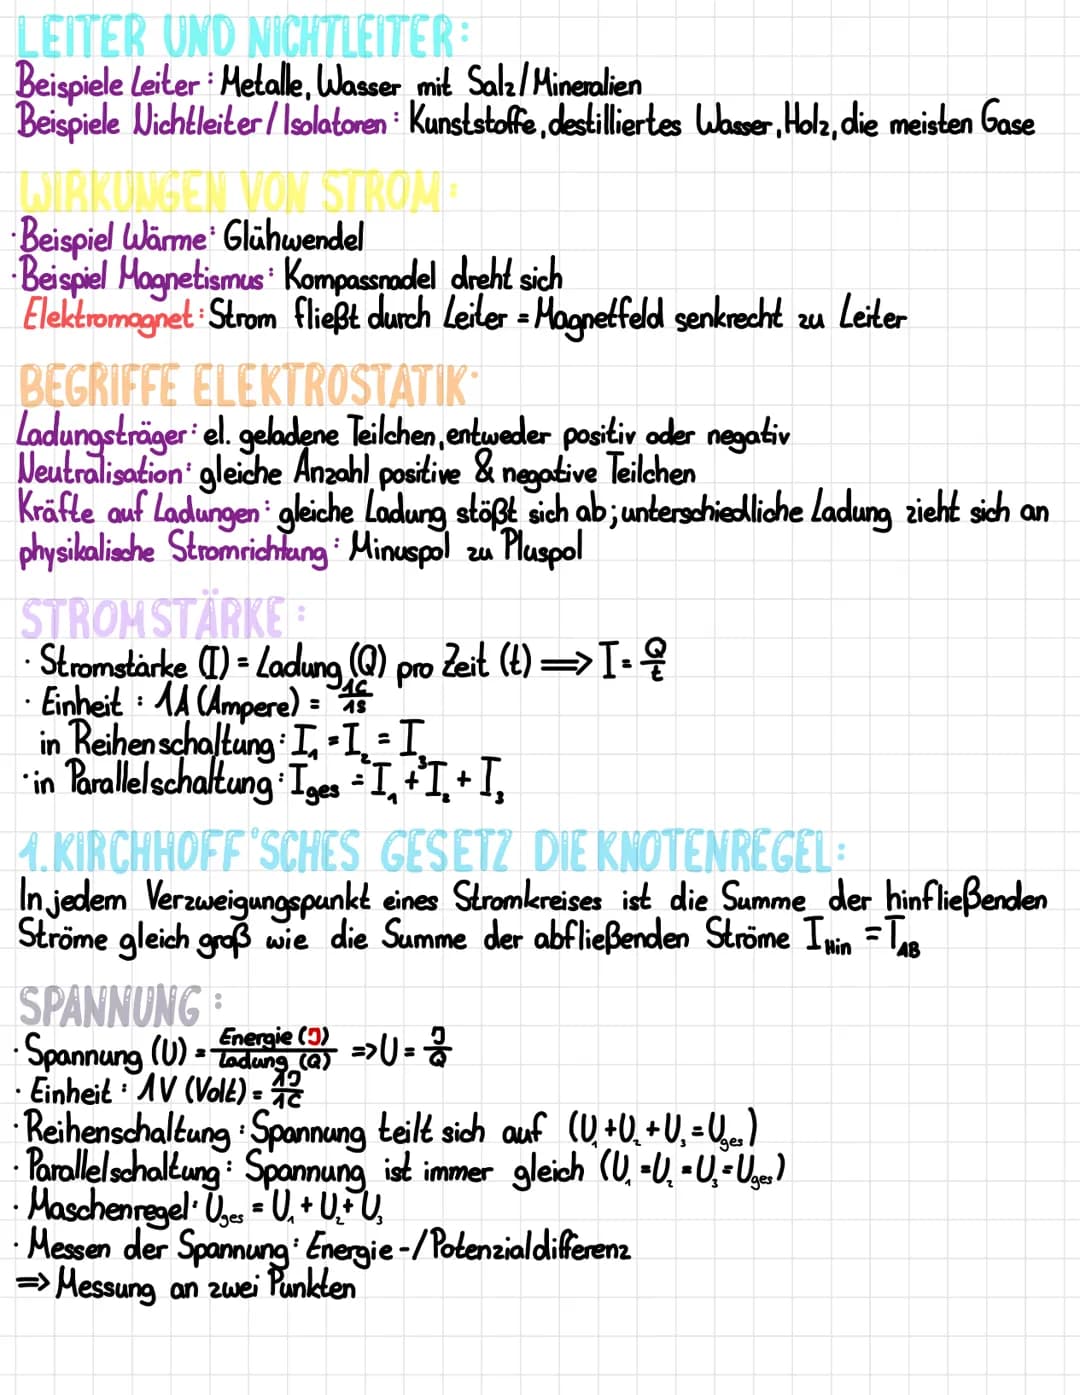 LEITER UND NICHTLEITER:
Beispiele Leiter: Metalle, Wasser mit Salz/Mineralien
Beispiele Nichtleiter/Isolatoren: Kunststoffe, destilliertes Wasser, Holz, die meisten Gase
WIRKUNGEN VON STROM:
·Beispiel Wärme: Glühwendel
·Beispiel Magnetismus: Kompassnadel dreht sich
Elektromagnet: Strom fließt durch Leiter = Magnetfeld senkrecht zu Leiter
BEGRIFFE ELEKTROSTATIK:
Ladungsträger: el. geladene Teilchen, entweder positiv oder negativ
Neutralisation: gleiche Anzahl positive & negative Teilchen
Kräfte auf Ladungen: gleiche Ladung stößt sich ab; unterschiedliche Ladung zieht sich an
physikalische Stromrichtung: Minuspol zu Pluspol
STROMSTÄRKE:
· Stromstärke (I) = Ladung (Q) pro Zeit (t) ⟹ I = Q/t
· Einheit: 1A (Ampere) = 1C/1S
in Reihenschaltung: I₁ = I₂ = I₃
·in Parallelschaltung: Iges = I₁ + I₂ + I₃
1. KIRCHHOFF'SCHES GESETZ DIE KNOTENREGEL:
In jedem Verzweigungspunkt eines Stromkreises ist die Summe der hinfließenden
Ströme gleich groß wie die Summe der abfließenden Ströme I Hin = I AB
SPANNUNG:
· Spannung (U) = Energie (J)/Ladung (Q) => U = J/Q
· Einheit: 1V (Volt) = 1J/1C
·Reihenschaltung: Spannung teilt sich auf (U₁+U₂+U₃=Uges)
· Parallelschaltung: Spannung ist immer gleich (U₁=U₂=U₃=Uges)
· Maschenregel: Uges = U₁+U₂+U₃
· Messen der Spannung: Energie-/Potenzialdifferenz
=> Messung an zwei Punkten